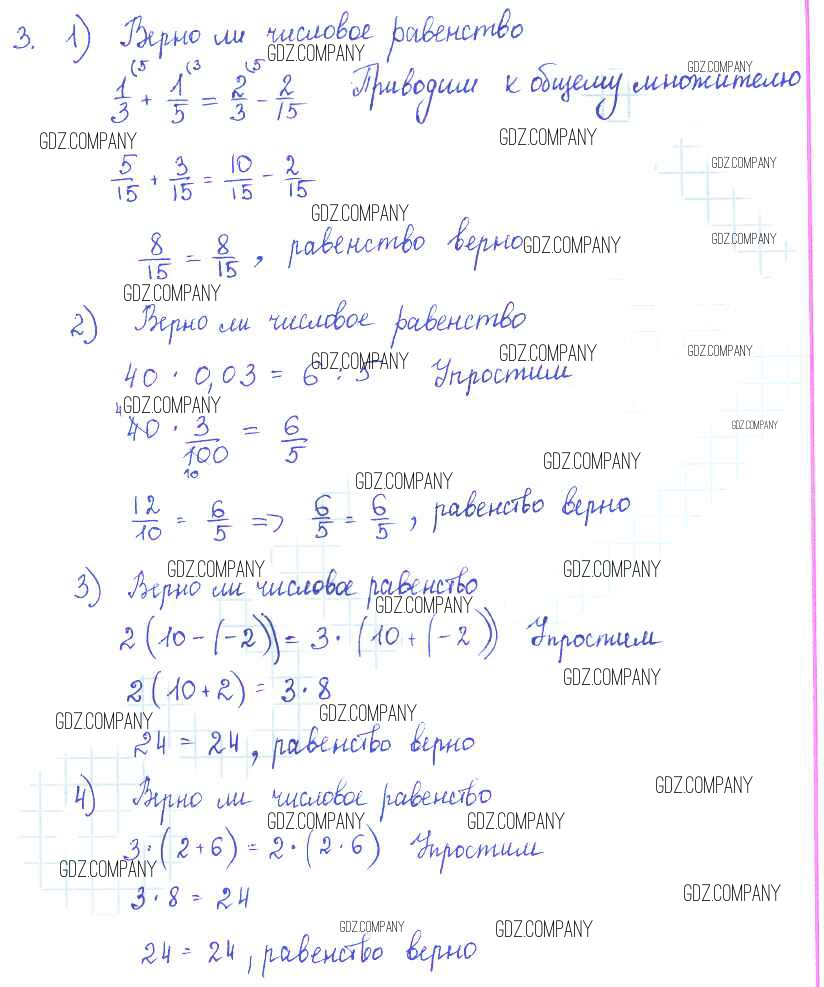 3. 1) Верно ли числовое равенство
GDZ.COMPANY
GDZ.COMPANY
1/3 (5 + 1/5 (3 = 2/3 (5 - 2/15 Приводим к общему множителю
GDZ.COMPANY
GDZ.COMPANY
5/15 + 3/15 = 10/15 - 2/15
GDZ.COMPANY
GDZ.COMPANY
8/15 = 8/15, равенство верно
GDZ.COMPANY
GDZ.COMPANY
GDZ.COMPANY
2) Верно ли числовое равенство
GDZ.COMPANY
GDZ.COMPANY
GDZ.COMPANY
40 · 0,03 = 6 : 5 Упростим
GDZ.COMPANY
GDZ.COMPANY
4
40 · 3/100 = 6/5
10
GDZ.COMPANY
GDZ.COMPANY
12/10 = 6/5 => 6/5 = 6/5, равенство верно
GDZ.COMPANY
GDZ.COMPANY
3) Верно ли числовое равенство
GDZ.COMPANY
2(10-(-2)) = 3·(10+(-2)) Упростим
GDZ.COMPANY
2(10+2) = 3·8
GDZ.COMPANY
GDZ.COMPANY
24 = 24, равенство верно
GDZ.COMPANY
4) Верно ли числовое равенство
GDZ.COMPANY
GDZ.COMPANY
3·(2+6) = 2·(2·6) Упростим
GDZ.COMPANY
3·8 = 24
GDZ.COMPANY
GDZ.COMPANY
GDZ.COMPANY
24 = 24, равенство верно